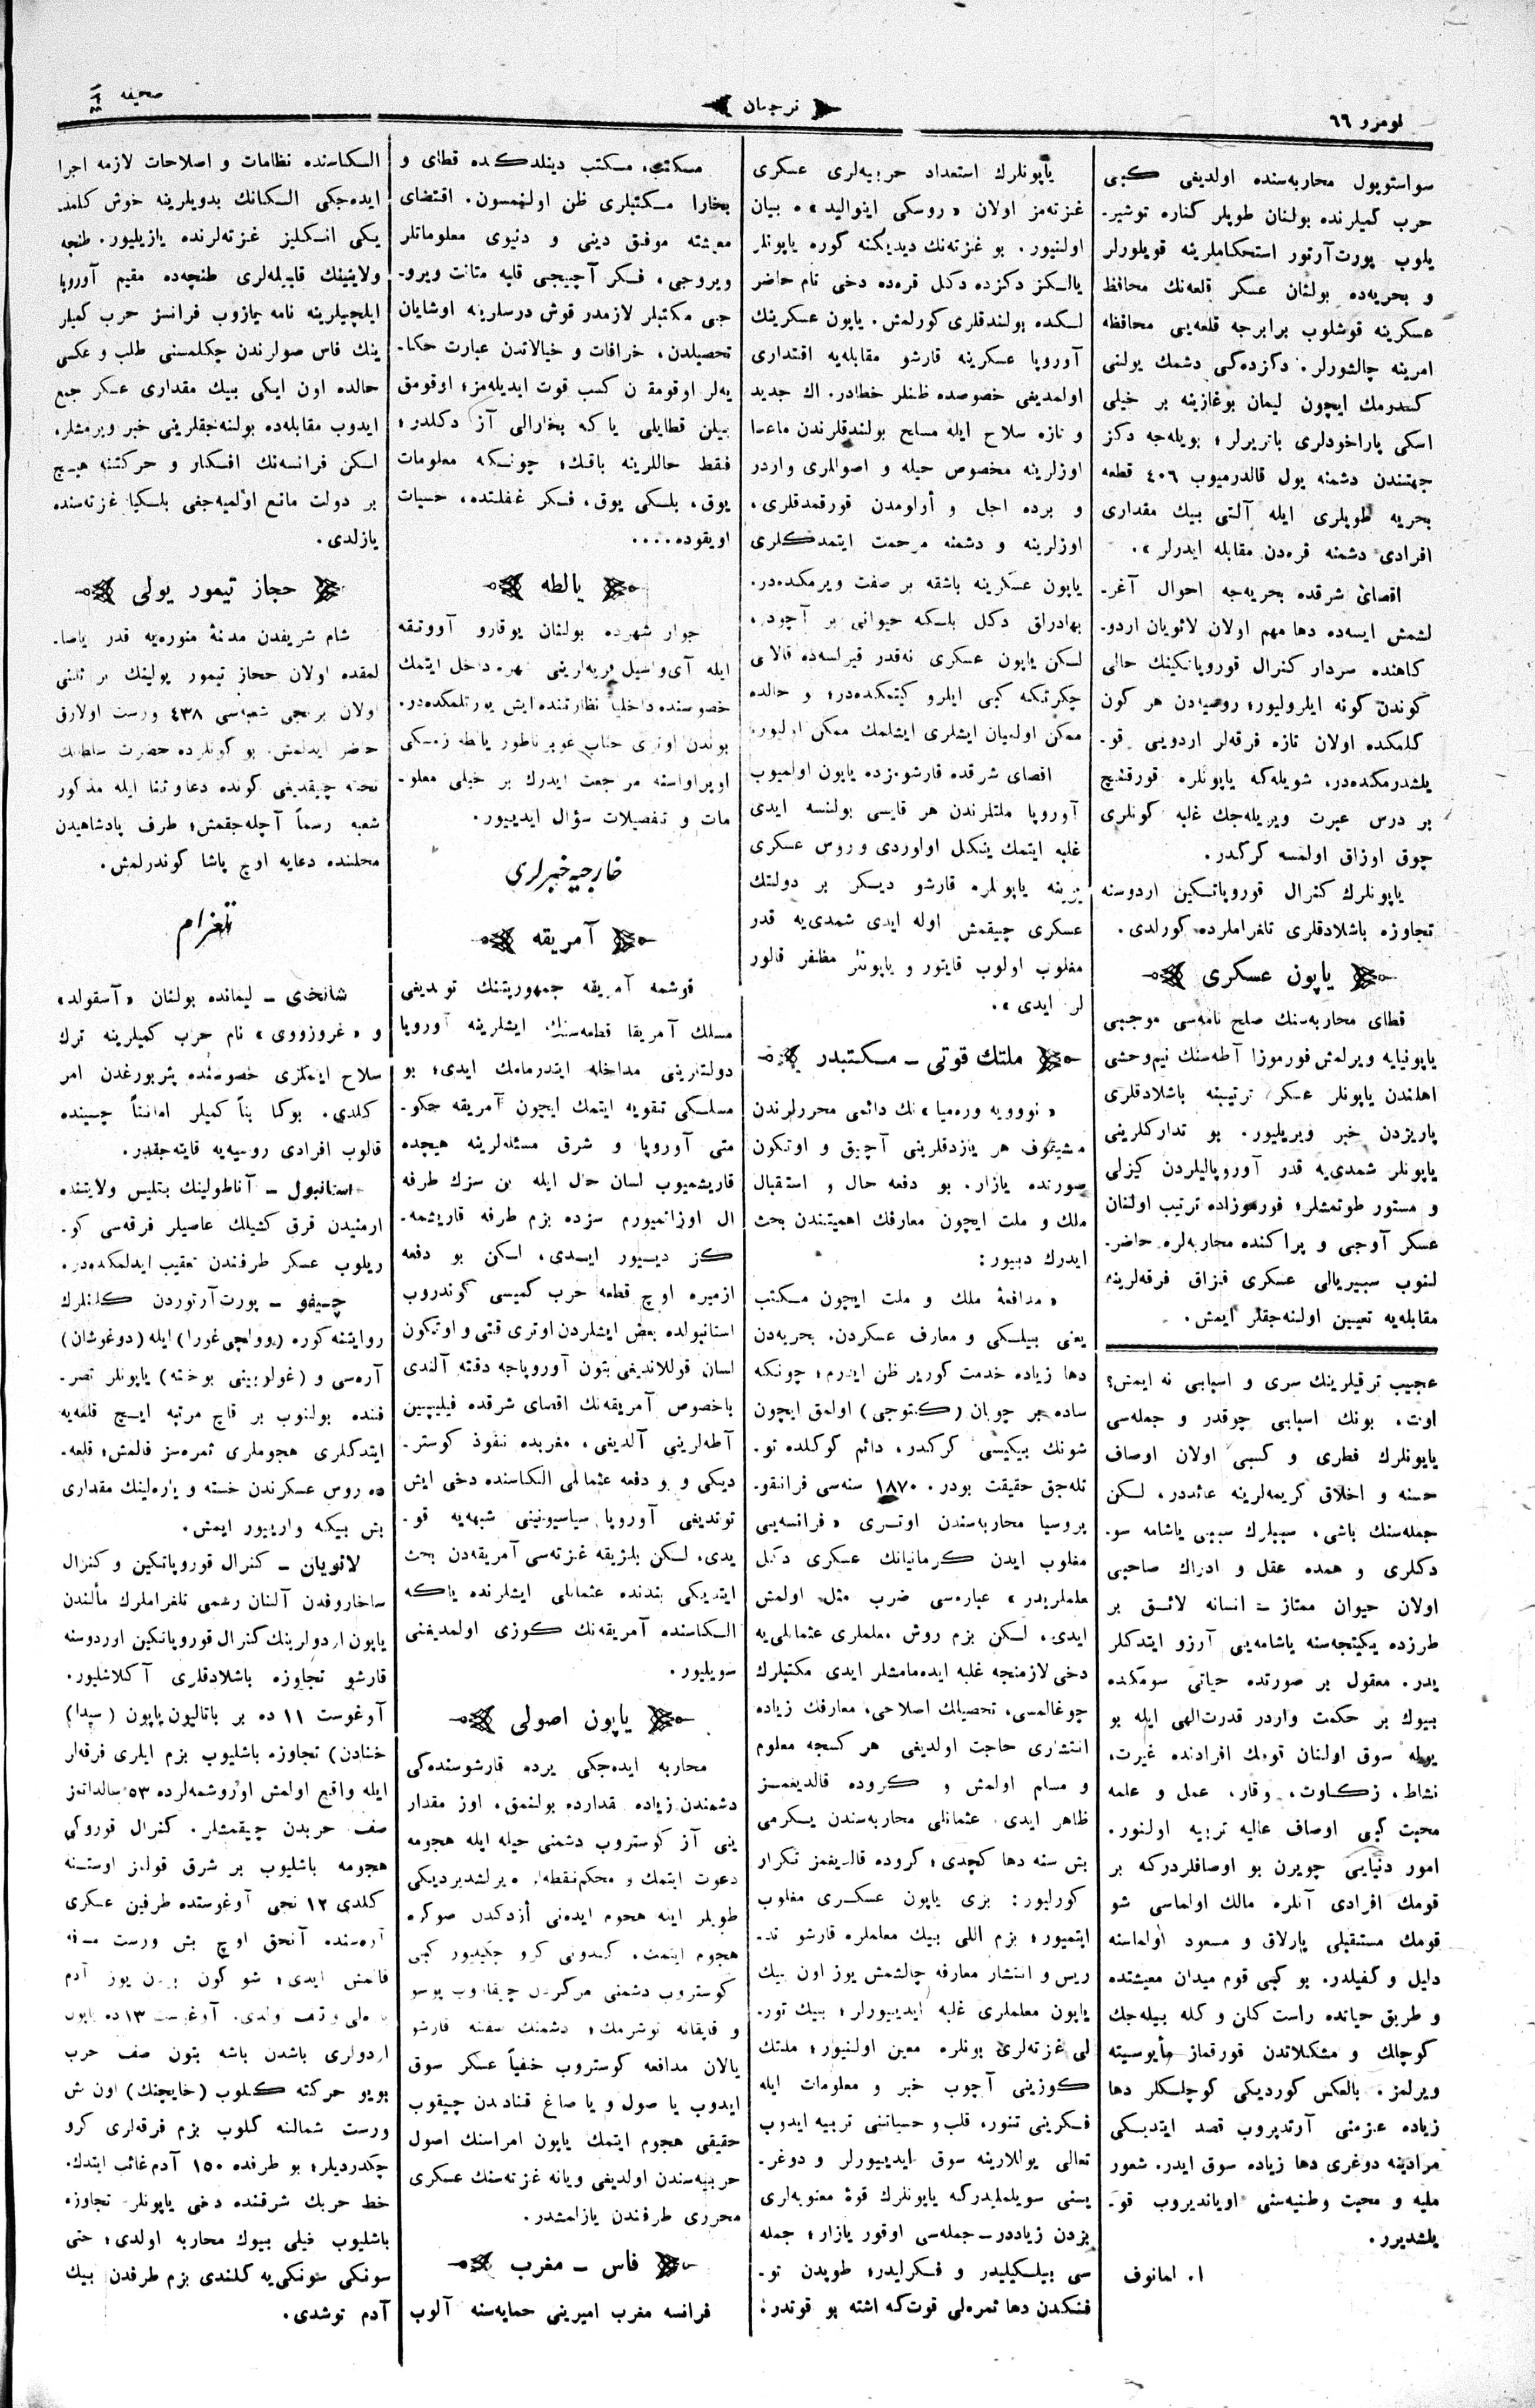 نومرو ٦٦
ترجمان
صحیفه
سواستوپول محاربه‌سنده اولدیغی کبی
حرب کمیلرنده بولنان طوپلر کناره توشیر-
یلوب پورت‌آرتور استحکاملرینه قویلورلر
و بحریه‌ده بولنان عسکر قلعه‌نك محافظ
عسکرینه قوشلوب برابرجه قلعه‌یی محافظه
امرینه چالشورلر. دکزده‌کی دشمك یولنی
کسدرمك ایچون لیمان بوغازینه بر خیلی
اسکی پاراخودلری باتریرلر؛ بویله‌جه دکز
جهتندن دشمنه یول قالدرمیوب ٤٠٦ قطعه
بحریه طوپلری ایله آلتی بیك مقداری
افرادی دشمنه قره‌دن مقابله ایدرلر».
اقصای شرقده بحریه‌جه احوال آغر-
لشمش ایسه‌ده دها مهم اولان لائویان اردو-
کاهنده سردار کنرال قوروپاتکینك حالی
کوندن کونه ایلرولیور؛ روسیادن هر کون
کلمکده اولان تازه فرقه‌لر اردویی قو-
یلشدرمکده‌در، شویله‌که یاپونلره قورقنچ
بر درس عبرت ویریله‌جك غلبه کونلری
چوق اوزاق اولمسه کرکدر.
یاپونلرك کنرال قوروپاتکین اردوسنه
تجاوزه باشلادقلری تلغراملرده کورلدی.
یاپون عسکری
قطای محاربه‌سنك صلح نامه‌سی موجبی
یاپونیایه ویرلمش فورموزا آطه‌سنك نیم‌وحشی
اهلندن یاپونلر عسکر ترتیبنه باشلادقلری
پاریزدن خبر ویریلیور. بو تدارکلرینی
یاپونلر شمدی‌یه قدر آوروپالیلردن کیزلی
و مستور طوتمشلر؛ فورموزاده ترتیب اولنان
عسکر آوجی و پراکنده محاربه‌لره حاضر-
لنوب سیبریالی عسکری قزاق فرقه‌لرینه
مقابله‌یه تعیین اولنه‌جقلر ایمش.
عجیب ترقیلرینك سری و اسبابی نه ایمش؟
اوت، بونك اسبابی چوقدر و جمله‌سی
یاپونلرك فطری و کسبی اولان اوصاف
حسنه و اخلاق کریمه‌لرینه عائددر، لکن
جمله‌سنك باشی، سببلرك سببی یاشامه سو-
دکلری و همده عقل و ادراك صاحبی
اولان حیوان ممتاز - انسانه لائق بر
طرزده یکیتجه‌سنه یاشامه‌یی آرزو ایتدکلر
یدر. معقول بر صورتده حیاتی سومکده
بیوك بر حکمت واردر قدرت‌الهی ایله بو
یوله سوق اولنان قومك افرادنده غیرت،
نشاط، زکاوت، وقار، عمل و علمه
محبت کبی اوصاف عالیه تربیه اولنور.
امور دنیایی چویرن بو اوصافلردرکه بر
قومك افرادی آنلره مالك اولماسی شو
قومك مستقبلی پارلاق و مسعود اولماسنه
دلیل و کفیلدر. بو کبی قوم میدان معیشتده
و طریق حیاتده راست کلن و کله بیله‌جك
کوچلك و مشکلاتدن قورقماز مأیوسیته
ویرلمز. بالعکس کوردیکی کوچلکلر دها
زیاده عزمنی آرتدیروب قصد ایتدیکی
مرادینه دوغری دها زیاده سوق ایدر. شعور
ملیه و محبت وطنیه‌سنی اویاندیروب قو-
یلشدیرر.
ا. امانوف
یاپونلرك استعداد حربیه‌لری عسکری
غزته‌مز اولان «روسکی اینوالید»، بیان
اولنیور. بو غزته‌نك دیدیکنه کوره یاپونلر
یالکز دکزده دکل قره‌ده دخی تام حاضر
لکده بولندقلری کورلمش. یاپون عسکرینك
آوروپا عسکرینه قارشو مقابله‌یه اقتداری
اولمدیغی خصوصده ظنلر خطادر. اك جدید
و تازه سلاح ایله مسلح بولندقلرندن ماعدا
اوزلرینه مخصوص حیله و اصوللری واردر
و برده اجل و أرلومدن قورقمدقلری،
اوزلرینه و دشمنه مرحمت ایتمدکلری
یاپون عسکرینه باشقه بر صفت ویرمکده‌در.
بهادرلق دکل بلکه حیوانی بر آچود.
لکن یاپون عسکری نه‌قدر قیرلسه‌ده قالانی
چکرتکه کبی ایلرو کیتمکده‌در؛ و حالده
ممکن اولمیان ایشلری ایشلمك ممکن اولیور.
اقصای شرقده قارشومزده یاپون اولمیوب
آوروپا ملتلرندن هر قایسی بولنسه ایدی
غلبه ایتمك ینکل اولوردی و روس عسکری
یرینه یاپونلره قارشو دیکر بر دولتك
عسکری چیقمش اوله ایدی شمدی‌یه قدر
مغلوب اولوب قایتور و یاپونلر مظفر قالور
لر ایدی».
ملتك قوتی - مکتبدر
«نوویه وره‌میا» نك دائمی محررلرندن
منشیقوف هر یازدقلرینی آچیق و اوتکون
صورتده یازار. بو دفعه حال و استقبال
ملك و ملت ایچون معارفك اهمیتندن بحث
ایدرك دیبور:
«مدافعهٔ ملك و ملت ایچون مکتب
یعنی بیلکی و معارف عسکردن، بحریه‌دن
دها زیاده خدمت کوریر ظن ایدرم؛ چونکه
ساده بر چوبان (کتوجی) اولمق ایچون
شونك بیکیسی کرکدر، دائم کوکلده تو-
تله‌جق حقیقت بودر. ١٨٧٠ سنه‌سی فرانقو-
پروسیا محاربه‌سندن اوتری «فرانسه‌یی
مغلوب ایدن کرمانیانك عسکری دکل
معلملریدر» عباره‌سی ضرب مثل اولمش
ایدی، لکن بزم روش معلملری عثمانلی‌یه
دخی لازمنجه غلبه ایده‌مامشلر ایدی مکتبلرك
چوغالمسی، تحصیلك اصلاحی، معارفك زیاده
انتشاری حاجت اولدیغی هر کسجه معلوم
و مسلم اولمش و کروده قالدیغمز
ظاهر ایدی. عثمانلی محاربه‌سندن یکرمی
بش سنه دها کچدی؛ کروده قالدیغمز تکرار
کورلیور: بزی یاپون عسکری مغلوب
ایتمیور؛ بزم اللی بیك معلملره قارشو تد-
ریس و انتشار معارفه چالشمش یوز اون بیك
یاپون معلملری غلبه ایدییورلر؛ بیك تور-
لی غزته‌لری بونلره معین اولنیور؛ ملتك
کوزینی آچوب خبر و معلومات ایله
فکرینی تنویر، قلب و حسیاتنی تربیه ایدوب
تعالی یوللارینه سوق ایدییورلر و دوغر-
یسنی سویلملیدرکه یاپونلرك قوهٔ معنویه‌لری
بزدن زیاددر - جمله‌سی اوقور یازار؛ جمله
سی بیلکیلیدر و فکرلیدر؛ طوپدن تو-
فنکدن دها ثمره‌لی قوت‌که اشته بو قوتدر:
مکتب، مکتب دینلدکده قطای و
بخارا مکتبلری ظن اولنمسون. اقتضای
معیشته موفق دینی و دنیوی معلوماتلر
ویروجی، فکر آچیجی قلبه متانت ویرو-
جی مکتبلر لازمدر قوش درسلرینه اوشایان
تحصیلدن، خرافات و خیالاتدن عبارت حکا-
یه‌لر اوقومقدن کسب قوت ایدیله‌مز؛ اوقومق
بیلن قطایلی یا که بخارالی آز دکلدر؛
فقط حاللرینه باقك؛ چونکه معلومات
یوق، بلکی یوق، فکر غفلتده، حسیات
اویقوده....
یالطه
جوار شهرده بولنان یوقارو آووتقه
ایله آی‌واسیل قریه‌لرینی شهره داخل ایتمك
خصوسنده داخلیه نظارتنده ایش یورتلمکده‌در.
بوندن اوتری جناب غوبرناطور یالطه زمسکی
اوپراواسنه مراجعت ایدرك بر خیلی معلو-
مات و تفصیلات سؤال ایدییور.
خارجیه خبرلری
آمریقه
قوشمه آمریقه جمهوریتنك توتدیغی
مسلك آمریقا قطعه‌سنك ایشلرینه آوروپا
دولتلرینی مداخله ایتدرمامك ایدی؛ بو
مسلکی تقویه ایتمك ایچون آمریقه حکو-
متی آوروپا و شرق مسئله‌لرینه هیچده
قاریشمیوب لسان حال ایله بن سزك طرفه
ال اوزاتمیورم سزده بزم طرفه قاریشمه-
کز دییور ایدی، لکن بو دفعه
ازمیره اوچ قطعه حرب کمیسی کوندروب
استانبولده بعض ایشلردن اوتری قتی و اوتکون
لسان قوللاندیغی بتون آوروپاجه دقته آلندی
باخصوص آمریقه‌نك اقصای شرقده فیلیپین
آطه‌لرینی آلدیغی، مغربده نفوذ کوستر-
دیکی و بو دفعه عثمانلی الکاسنده دخی ایش
توتدیغی آوروپا سیاسیونینی شبهه‌یه قو-
یدی، لکن بلژیقه غزته‌سی آمریقه‌دن بحث
ایتدیکی بندنده عثمانلی ایشلرنده یاکه
الکاسنده آمریقه‌نك کوزی اولمدیغنی
سویلیور.
یاپون اصولی
محاربه ایده‌جکی یرده قارشوسنده‌کی
دشمندن زیاده مقدارده بولنمق، اوز مقدار
ینی آز کوستروب دشمنی حیله ایله هجومه
دعوت ایتمك و محکم نقطه‌لره یرلشدیردیکی
طوپلر ایله هجوم ایده‌نی أزدکدن صوکره
هجوم ایتمك، کندونی کرو چکلیور کبی
کوستروب دشمنی مرکزدن چیقاروب پوسو
و قاپقانه توشرمك؛ دشمنك صفنه قارشو
یالان مدافعه کوستروب خفیاً عسکر سوق
ایدوب یا صول و یا صاغ قنادندن چیقوب
حقیقی هجوم ایتمك یاپون امراسنك اصول
حربیه‌سندن اولدیغی ویانه غزته‌سنك عسکری
محرری طرفندن یازلمشدر.
فاس - مغرب
فرانسه مغرب امیرینی حمایه‌سنه آلوب
الکاسنده نظامات و اصلاحات لازمه اجرا
ایده‌جکی الکانك بدویلرینه خوش کلمد-
یکی انکلیز غزته‌لرنده یازیلیور. طنجه
ولایتینك قابیله‌لری طنچه‌ده مقیم آوروپا
ایلچیلرینه نامه یازوب فرانسز حرب کمیلر
ینك فاس صولرندن چکلمسنی طلب و عکسی
حالده اون ایکی بیك مقداری عسکر جمع
ایدوب مقابله‌ده بولنه‌جقلرینی خبر ویرمشلر،
لکن فرانسه‌نك افکار و حرکتنه هیچ
بر دولت مانع اولمیه‌جغی بلکیا غزته‌سنده
یازلدی.
حجاز تیمور یولی
شام شریفدن مدنهٔ منوره‌یه قدر یاصا-
لمقده اولان حجاز تیمور یولینك بر ثلثی
اولان برنجی شعبه‌سی ٤٣٨ ورست اولارق
حاضر ایدلمش. بو کونلرده حضرت سلطانك
تخته چیقدیغی کونده دعا و ثنا ایله مذکور
شعبه رسماً آچله‌جقمش؛ طرف پادشاهیدن
محلنده دعایه اوچ پاشا کوندرلمش.
تلغرام
شانخای - لیمانده بولنان «آسقولد»
و «غروزووی» نام حرب کمیلرینه ترك
سلاح ایتملری خصوصنده پتربورغدن امر
کلدی. بوکا بناً کمیلر امانتاً چینده
قالوب افرادی روسیه‌یه قایته‌جقدر.
استانبول - آناطولینك بتلیس ولایتنده
ارمنیدن قرق کشیلك عاصیلر فرقه‌سی کو-
ریلوب عسکر طرفندن تعقیب ایدلمکده‌در.
چیفو - پورت‌آرتوردن کلنلرك
روایتنه کوره (وولچی‌غورا) ایله (دوغوشان)
آره‌سی و (غولوبینی بوخته) یاپونلر تصر-
فنده بولنوب بر قاچ مرتبه ایچ قلعه‌یه
ایتدکلری هجوملری ثمره‌سز قالمش؛ قلعه-
ده روس عسکرندن خسته و یاره‌لینك مقداری
بش بیکه وارییور ایمش.
لائویان - کنرال قوروپاتکین و کنرال
ساخاروفدن آلنان رسمی تلغراملرك مألندن
یاپون اردولرینك کنرال قوروپاتکین اوردوسنه
قارشو تجاوزه باشلادقلری آکلاشلیور.
آوغوست ١١ ده بر باتالیون یاپون (سیدا)
خنادن) تجاوزه باشلیوب بزم ایلری فرقه‌لر
ایله واقع اولمش اوروشمه‌لرده ٥٣ سالداتمز
صف حربدن چیقمشلر. کنرال قوروکی
هجومه باشلیوب بر شرق قولمز اوستنه
کلدی ١٢ نجی آوغوستده طرفین عسکری
آره‌سنده آنحق اوچ بش ورست مسافه
قالمش ایدی؛ شو کون یوز آدم
آوغوست ١٣ ده یاپون
اردولری باشدن باشه بتون صف حرب
بویو حرکته کلوب (خایچنك) اون بش
ورست شمالنه کلوب بزم فرقه‌لری کرو
چکدردیلر؛ بو طرفده ١٥٠ آدم غائب ایتدك.
خط حربك شرقنده دخی یاپونلر تجاوزه
باشلیوب خیلی بیوك محاربه اولدی؛ حتی
سونکی سونکی‌یه کلندی بزم طرفدن بیك
آدم توشدی.